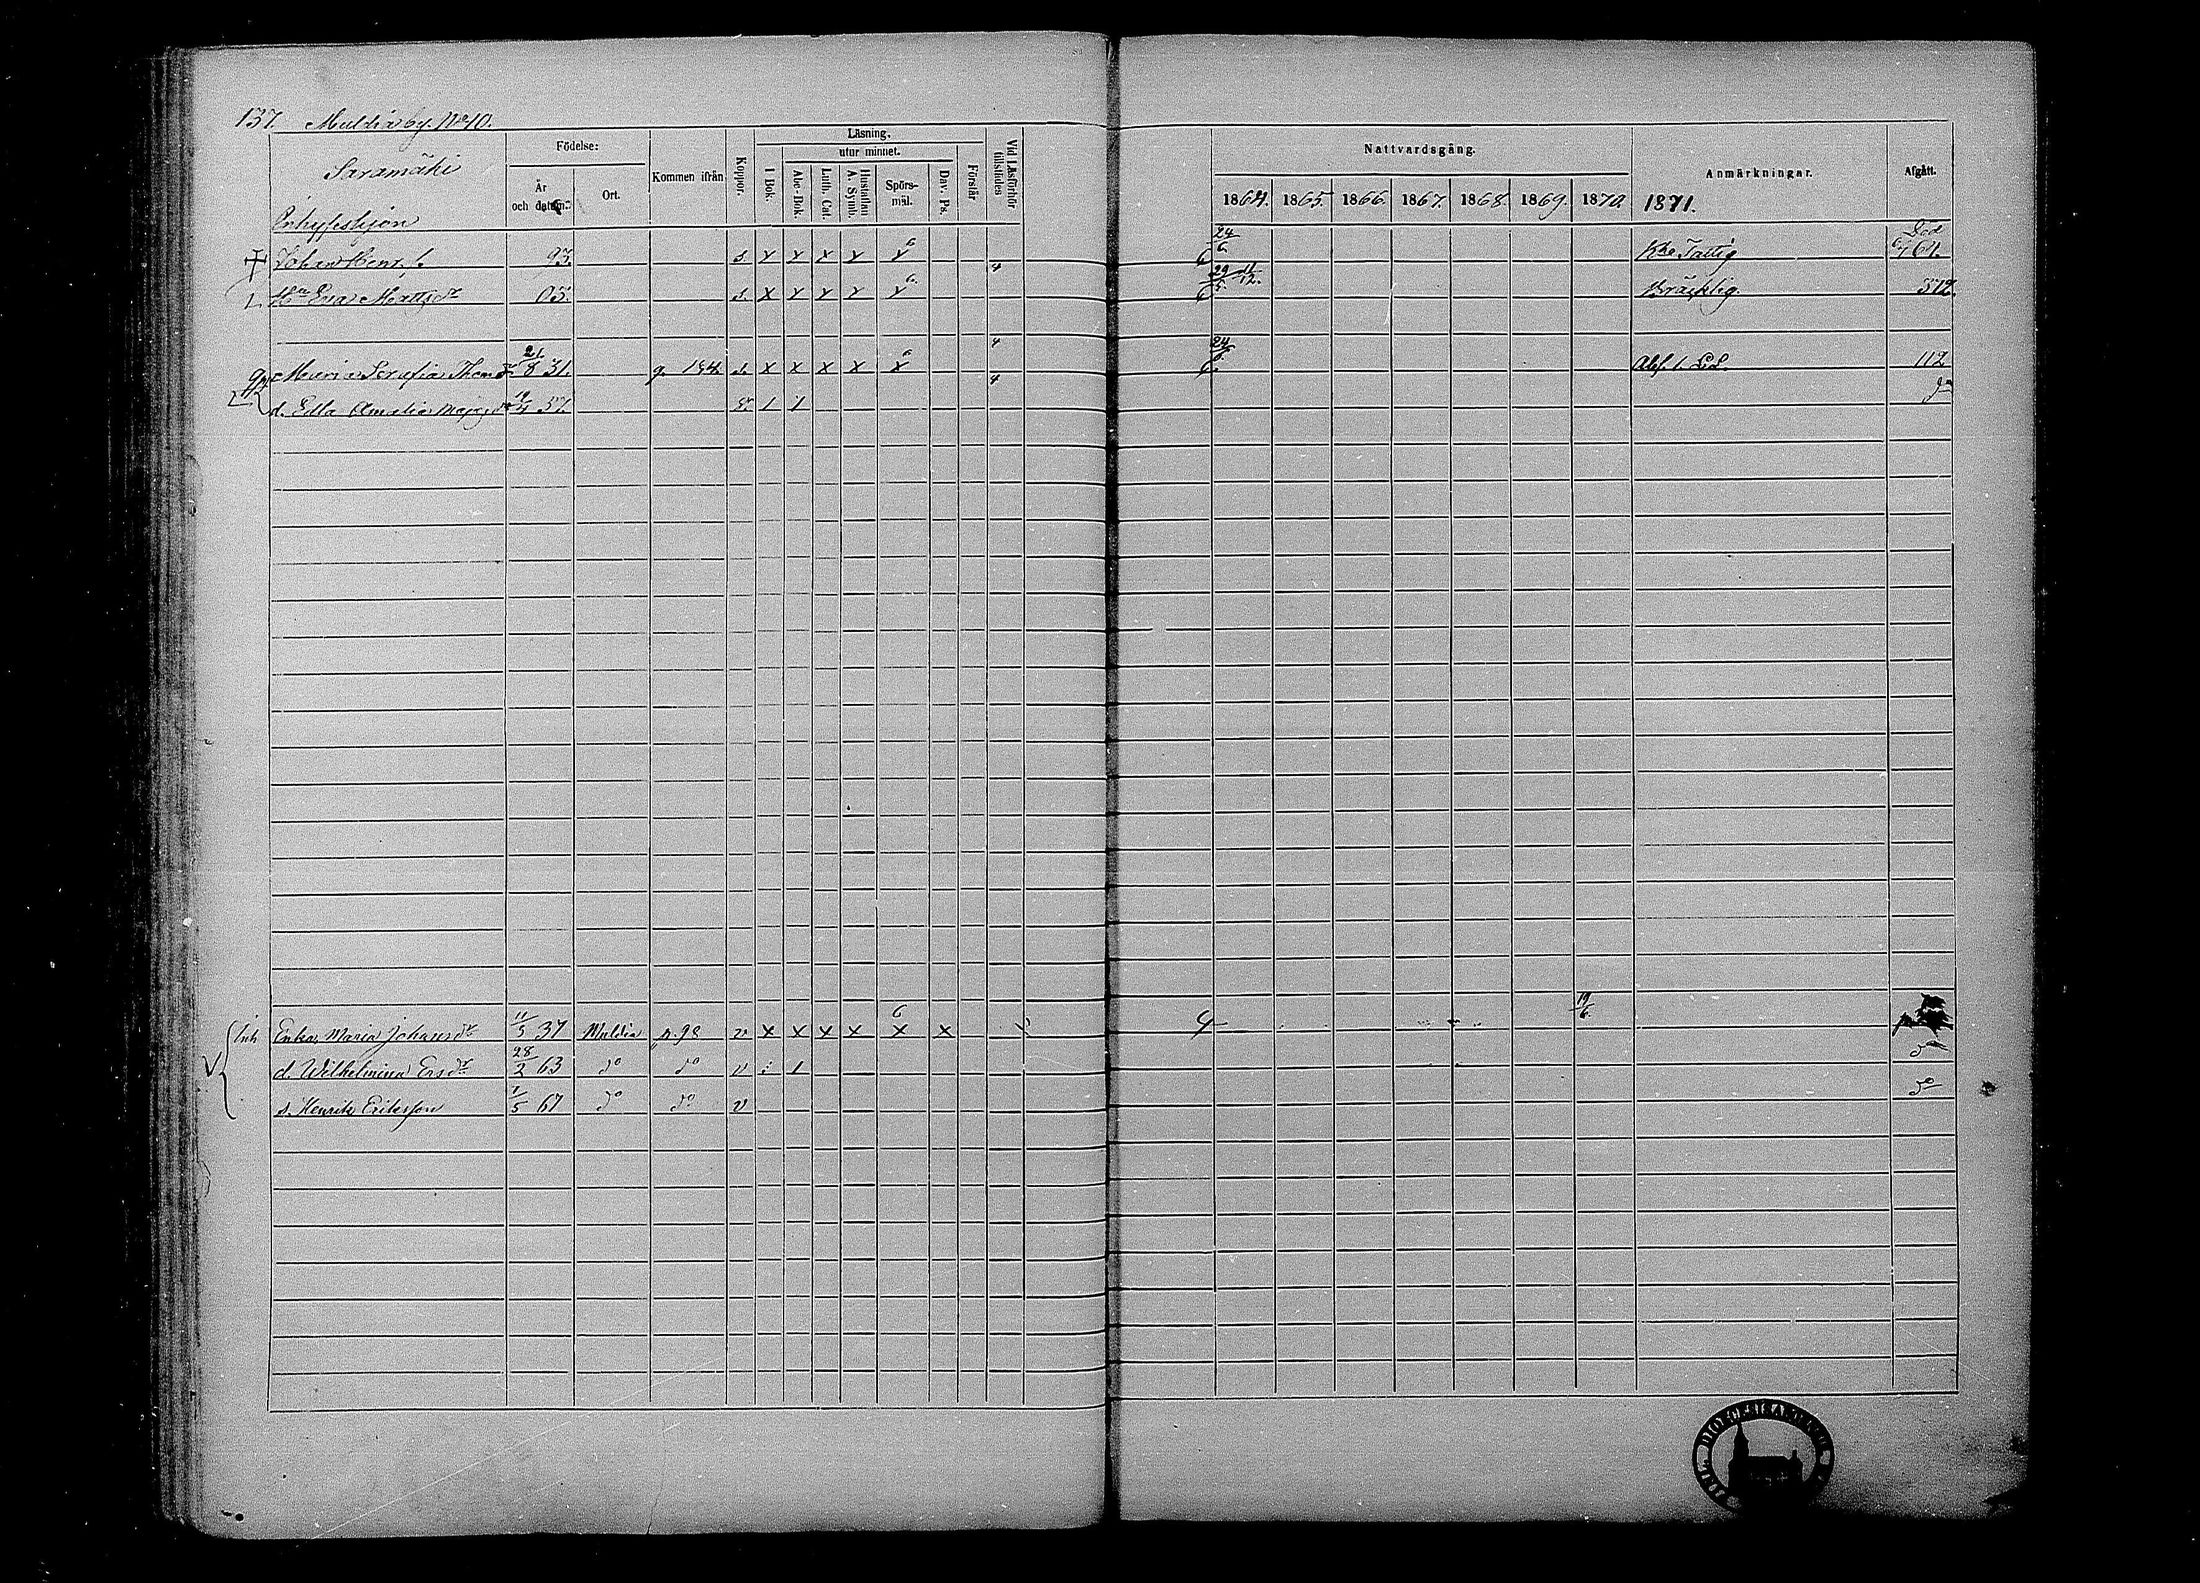 137. Muldia by. No 10.
Saramäki
Födelse:
År och datum.
Ort.
Kommen ifrån
Koppor.
Läsning.
I Bok.
utur minnet.
Abc-Bok.
Luth. Cat.
Hustaflan A. Symb.
Spörs-mål.
Dav. Ps.
Förstår
Vid Läsförhör tillstädes
Nattvardsgång.
1864. 1865. 1866. 1867. 1868. 1869. 1870.
Anmärkningar.
1871.
Afgått.
Johan Henr. s. 93. s. x x x x x 6 24/6 Fattig Död 64.
Hu Eva Mattsdr 05. s. x x x x x 6 4 29/5 11/12. Bräcklig. 512.
Maria Serafia Thomdr 21/8 31. p. 154. s. x x x x x 6 4 24/6. 112
d. Edla Amalia 57. 1 1 4 do
Inh Enka, Maria Johansdr 11/5 37 Muldia p. 98 v x x x x x 6 x 19/6.
d. Wilhelmina Ersdr 28/2 63 do do v 1 do
s. Henrik Eriksson 1/5 67 do do v do